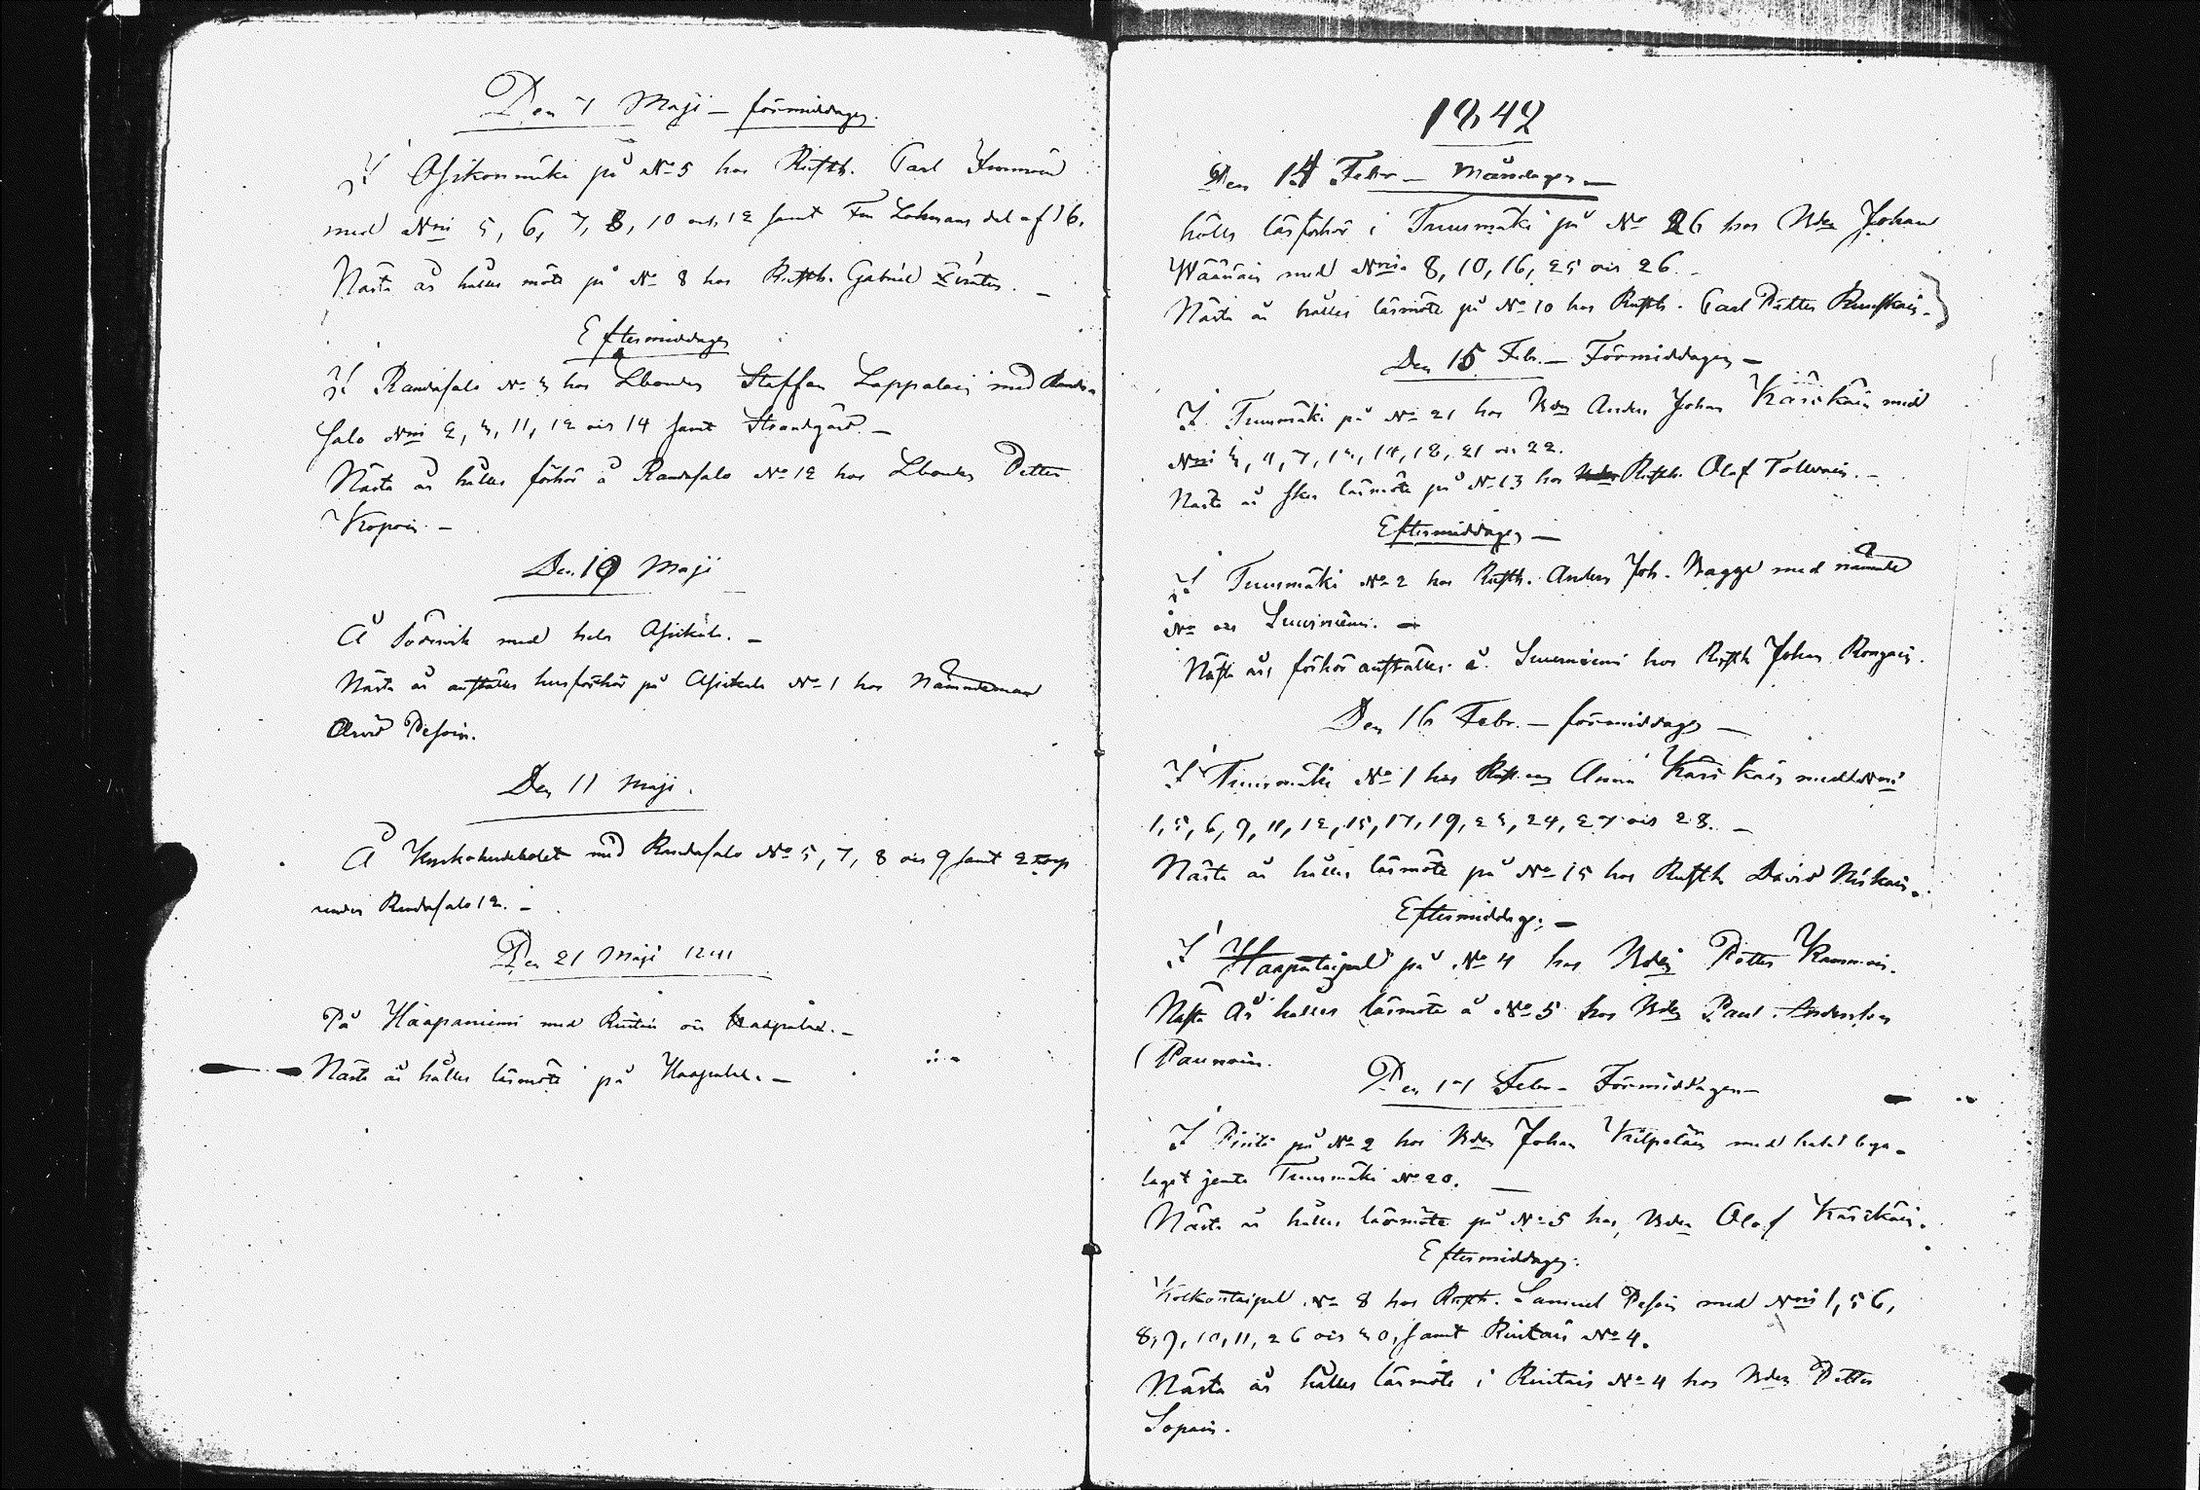 Den 7 Maji – förmiddagen.
I Asikonmäki på No 5 hos Rusth. Carl Immoin
med Nrri 5, 6, 7, 8, 10 och 12 samt Fru Lohmans del af 16.
Nästa år hålles möte på No 8 hos Rusth. Gabriel
Eftermiddagen
I Randasalo No 3 hos Lbonden Staffan Lappalain med Randa-
salo Nrri 2, 3, 11, 12 och 14 samt Strandgård. –
Nästa år hålles förhör å Randasalo No 12 hos Lbonden Petter
Kropoin. –
Den 10 Maji
Å Södervik med hela Asikkala. –
Nästa år anställes husförhör på Asikkala No 1 hos Nämndeman
Arvid Pesoin.
Den 11 Maji.
Å med Randasalo No 5, 7, 8 och 9 samt 2 torp
under Randasalo 12. –
Den 21 Maji 1841
På Haapaniemi med och Haapalax. –
Nästa år hålles läsmöte på Haapalax. –
1842
Den 14 Febr – Måndagen –
hålls läsförhör i Tuusmäki på No 26 hos Bden Johan
Wäänäin med Nris 8, 10, 16, 25 och 26. –
Nästa år hålles läsmöte på No 10 hos Rusth. Carl Petter
Den 15 Feb. – Förmiddagen –
I Tuusmäki på No 21 hos Bden Anders Johan Kärikäin med
Nrri 3, 4, 7, 13, 14, 18, 21 och 22.
Nästa år sker läsmöte på No 13 hos Rusth. Olof Tolvain. –
Eftermiddagen –
I Tuusmäki No 2 hos Rusth. Anders Joh. Bagge med nämnde
No och Suurniemi. –
Nästa års förhör anställes å Suurniemi hos Rusth Johan Rongain.
Den 16 Febr. – förmiddagen –
I Tuusmäki No 1 hos Anna Kärikäin med Nrri
1, 5, 6, 9, 11, 12, 15, 17, 19, 23, 24, 27 och 28. –
Nästa år hålles läsmöte på No 15 hos Rusth David Niskain.
Eftermiddagen –
I Haapataipal på No 4 hos Bden Petter
Nästa år hålles läsmöte å No 5 hos Bden Paul Andersson
Paunoin.
Den 17 Febr – Förmiddagen –
I på No 2 hos Bden Johan Kilpeläin med hela bya-
laget jemte Tuusmäki No 20. –
Nästa år hålles läsmöte på No 5 hos Bden Olof Kärikäin.
Eftermiddagen.
Kolkontaipal No 8 hos Rusth. Samuel Pesoin med Nrri 1, 5 6,
8, 9, 10, 11, 26 och 30, samt No 4.
Nästa år hålles läsmöte i No 4 hos Bden Petter
Sopain.